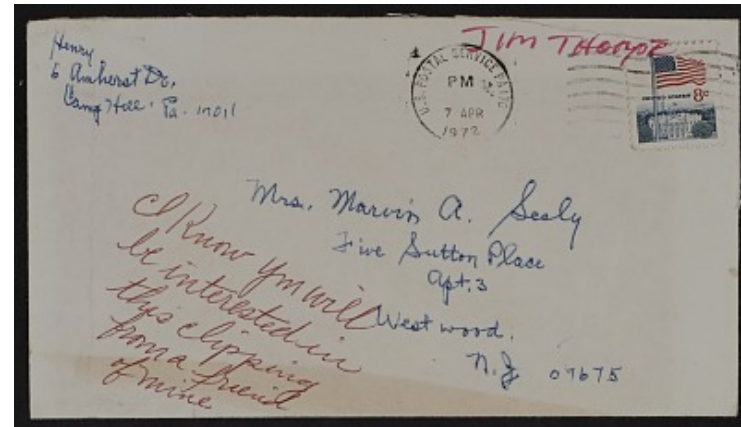 JIM THORPE
Henry
6 Amherst Dr.
Camp Hill. Pa. 17011
U.S. POSTAL SERVICE PA 170
PM
7 APR
1972
8c
Mrs. Marvin A. Seely
Five Sutton Place
Apt. 3
Westwood.
N.J 07675
I Know you will
be interested in
this clipping
from a friend
of mine